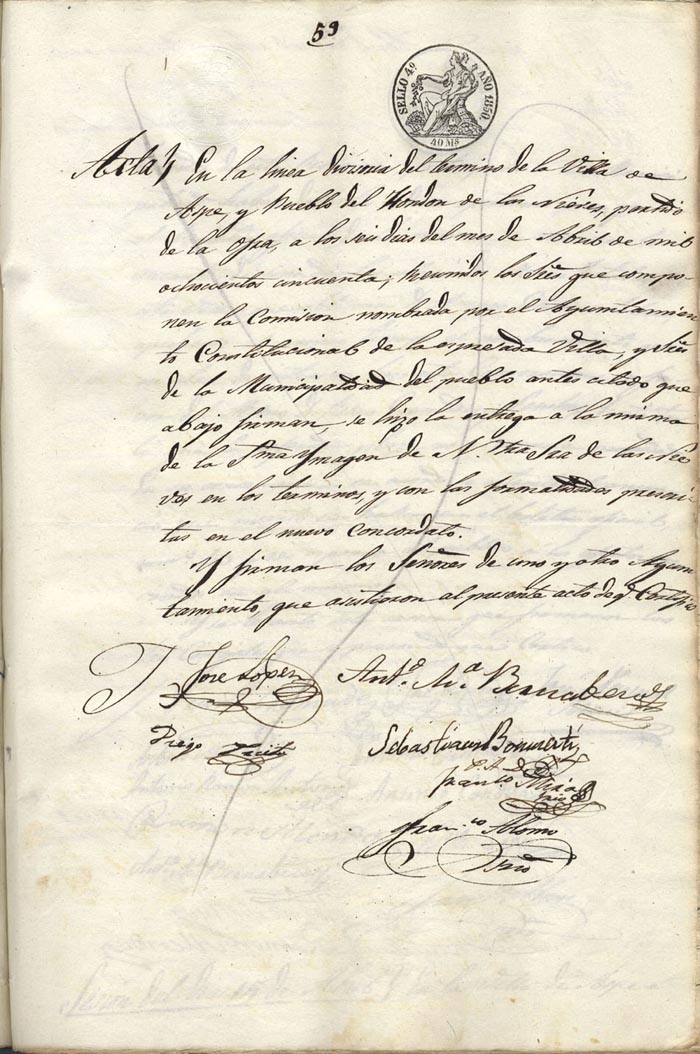 59
SELLO 4º AÑO 1850.
40 Ms
Acta En la linea divisoria del termino de la Villa de
Aspe, y Pueblo del Hondon de las Nieves, partido
de la Ofra, a los seis dias del mes de Abril de mil
ochocientos cincuenta; Reunidos los Sres que compo-
nen la Comision nombrada por el Ayuntamien-
to Constitucional de la espresada Villa, y Sres
de la Municipalidad del pueblo antes citado que
abajo firman, se hizo la entrega a la misma
de la Sma Ymagen de N. tra Sra de las Nie-
ves en los terminos, y con las formalidades prescri-
tas en el nuevo concordato.
Y firman los Señores de uno y otro Ayun-
tamiento, que asistieron al presente acto de q Certifico
Jose Lopez Anto. Ma Bernabeu
Diego Sebastian
Franco.
Fran.co Alomo
Srio